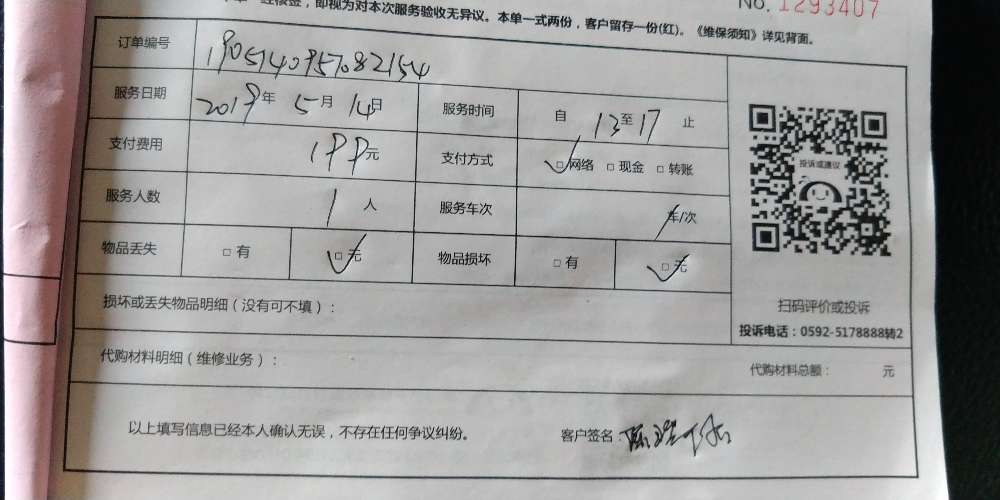 经核金，即视为对本次服务验收无异议。本单一式两份，客户留存一份(红)。《维保须知》详见背面。
No. 1293407
订单编号 1905140957082154
服务日期 2019年 5月 14日 服务时间 自 13至17 止
支付费用 199元 支付方式 □网络 □现金 □转账
服务人数 1 人 服务车次 车/次
物品丢失 □有 □无 物品损坏 □有 □无
投诉或建议
扫码评价或投诉
投诉电话：0592-5178888转2
损坏或丢失物品明细（没有可不填）：
代购材料明细（维修业务）： 代购材料总额： 元
以上填写信息已经本人确认无误，不存在任何争议纠纷。 客户签名：